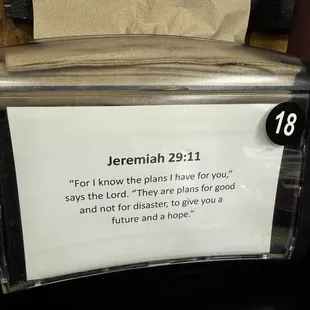 18
Jeremiah 29:11
“For I know the plans I have for you,”
says the Lord. “They are plans for good
and not for disaster, to give you a
future and a hope.”